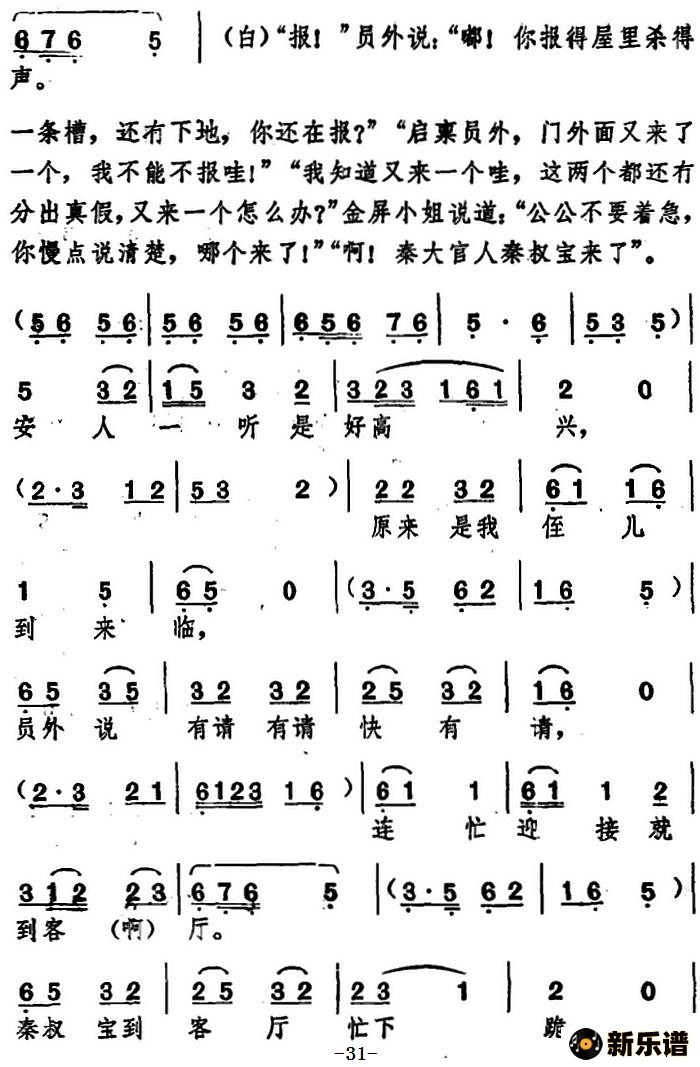 6 7 6 5 | （白）“报！”员外说：“嘟！你报得屋里杀得
声。
一条槽，还冇下地，你还在报？”“启禀员外，门外面又来了
一个，我不能不报哇！”“我知道又来一个哇，这两个都还冇
分出真假，又来一个怎么办？”金屏小姐说道：“公公不要着急，
你慢点说清楚，哪个来了！”“啊！秦大官人秦叔宝来了”。
（5 6 5 6 | 5 6 5 6 | 6 5 6 7 6 | 5 · 6 | 5 3 5）|
5 3 2 | 1 5 3 2 | 3 2 3 1 6 1 | 2 0 |
安 人 一 听 是 好 高 兴，
（2 · 3 1 2 | 5 3 2）| 2 2 3 2 | 6 1 1 6 |
原来 是我 侄 儿
1 5 | 6 5 0 |（3 · 5 6 2 | 1 6 5）|
到 来 临，
6 5 3 5 | 3 2 3 2 | 2 5 3 2 | 1 6 0 |
员外 说 有请 有请 快 有 请，
（2 · 3 2 1 | 6 1 2 3 1 6）| 6 1 1 | 6 1 1 2 |
连 忙 迎 接 就
3 1 2 2 3 | 6 7 6 5 |（3 · 5 6 2 | 1 6 5）|
到客 （啊） 厅。
6 5 3 2 | 2 5 3 2 | 2 3 1 | 2 0 |
秦叔 宝到 客 厅 忙下 跪
-31-
新乐谱